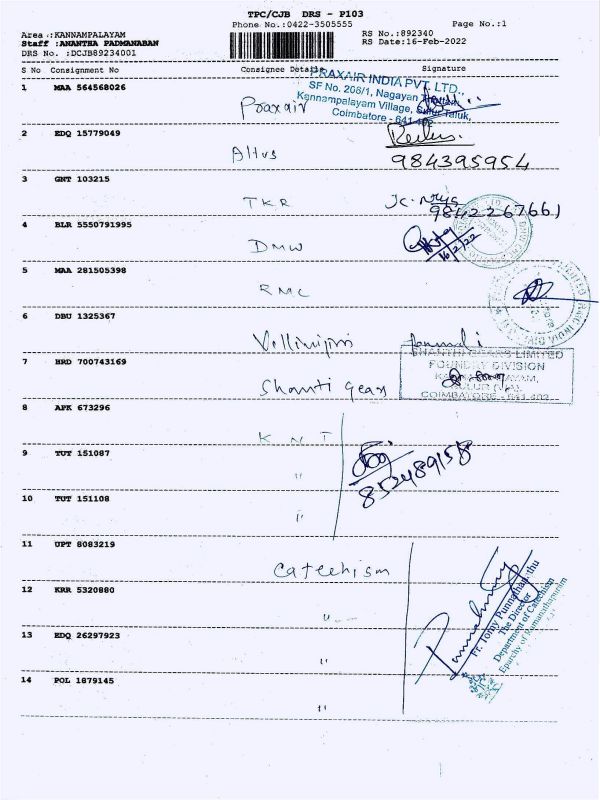 TPC/CJB DRS - P103
Phone No.:0422-3505555
Page No.:1
Area .:KANNAMPALAYAM
RS No.:892340
Staff :ANANTHA PADMANABAN
RS Date:16-Feb-2022
DRS No. :DCJB89234001
S No Consignment No Consignee Details Signature
1 MAA 564568026
Praxair
PRAXAIR INDIA PVT. LTD.,
SF No. 206/1, Nagayan Thottam,
Kannampalayam Village, Sulur Taluk,
Coimbatore - 641 402
2 EDQ 15779049
Altus
984395954
3 GNT 103215
TKR
9842267661
4 BLR 5550791995
DMW
16/2/22
5 MAA 281505398
RMC
6 DBU 1325367
7 HRD 700743169
Shanti Gears
SHANTHI GEARS LIMITED
FOUNDRY DIVISION
KANNAMPALAYAM,
SULUR (VIA),
COIMBATORE - 641 402
8 APK 673296
KNT
9 TUT 151087
"
852489158
10 TUT 151108
"
11 UPT 8083219
Catechism
12 KRR 5320880
"
13 EDQ 26297923
"
14 POL 1879145
"
Fr. Tomy Punnathanathu
The Director
Department of Catechism
Eparchy of Ramanathapuram